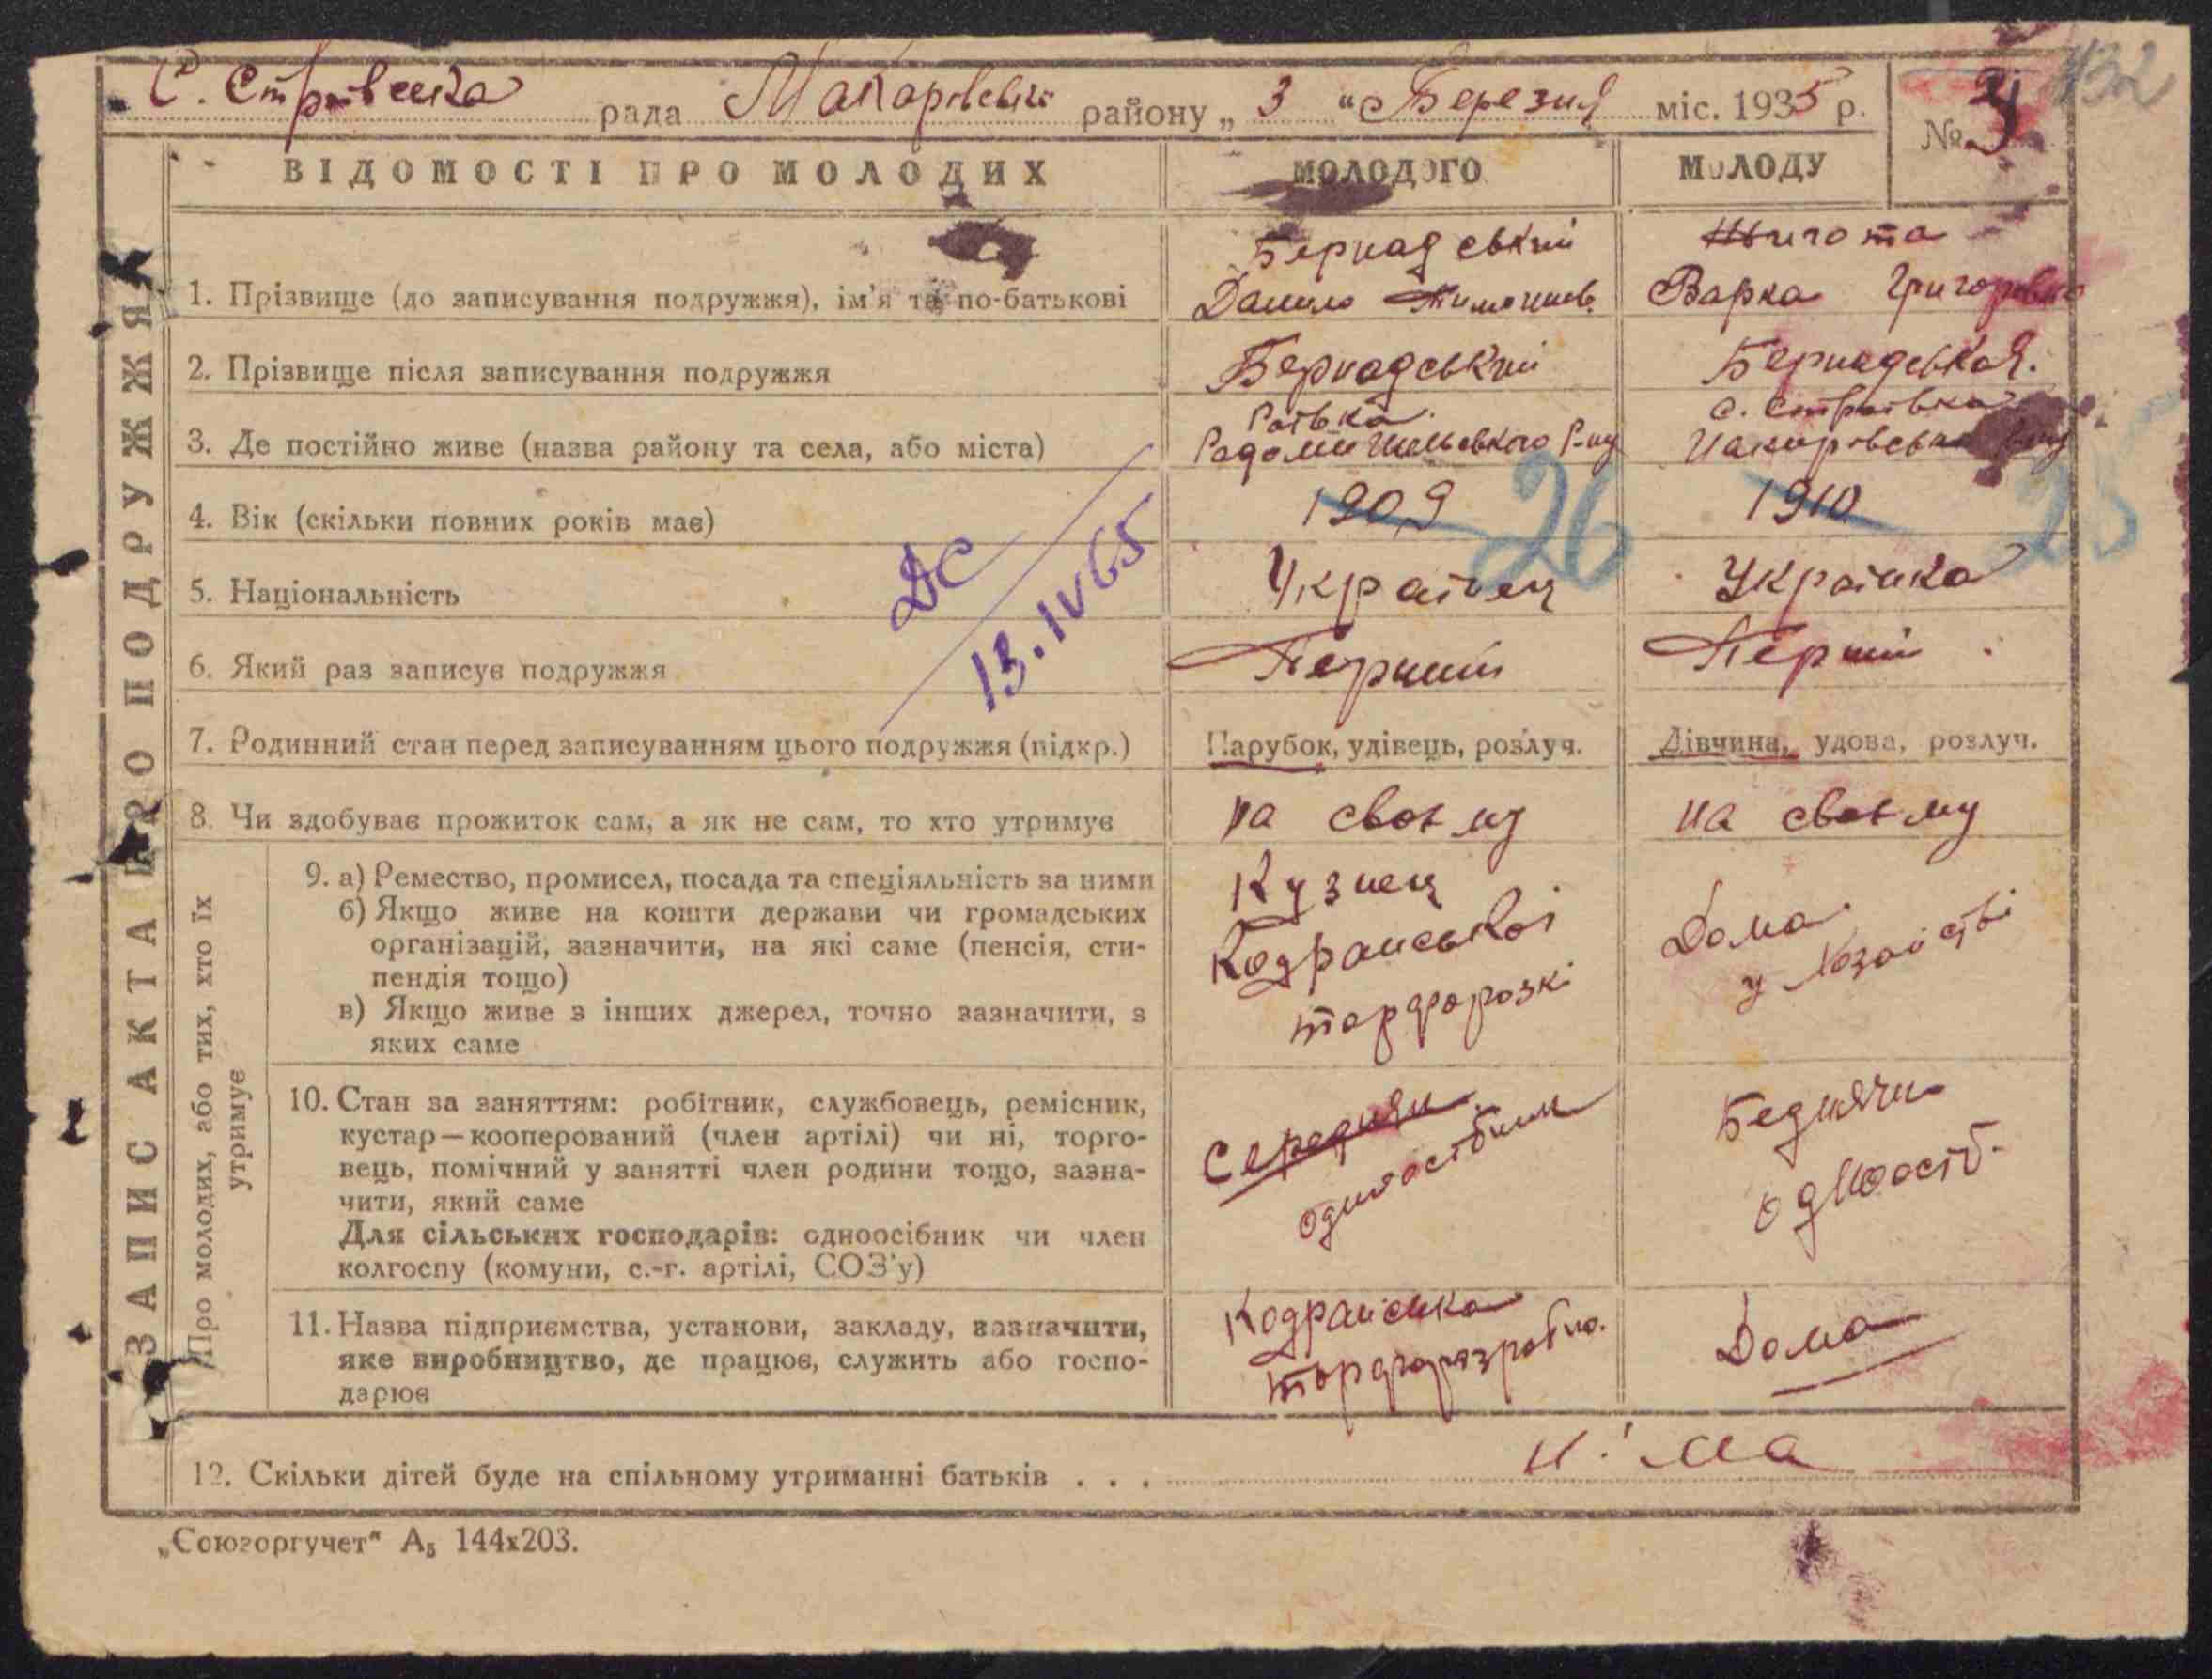 С. Стрівська рада Макарівськ району „ 3 “ Березня міс. 1935 р.
№ 4
132
ВІДОМОСТІ ПРО МОЛОДИХ
МОЛОДОГО
МОЛОДУ
ЗАПИС АКТА ПРО ПОДРУЖЖЯ
1. Прізвище (до записування подружжя), ім'я та по-батькові
Бернадський
Данило Тимошев.
Варка Григоровна
2. Прізвище після записування подружжя
Бернадський
Бернадськая.
3. Де постійно живе (назва району та села, або міста)
Раївка
Радомишельського Р-ну
с. Строївка
Макаровського
4. Вік (скільки повних років має)
1909 26
1910 25
5. Національність
Українец
Українка
ДС
13.IV 65
6. Який раз записує подружжя
Перший
Перший
7. Родинний стан перед записуванням цього подружжя (підкр.)
Парубок, удівець, розлуч.
Дівчина, удова, розлуч.
8. Чи здобуває прожиток сам, а як не сам, то хто утримує
на своєму
на своєму
Про молодих, або тих, хто їх утримує
9. а) Ремество, промисел, посада та спеціяльність за ними
б) Якщо живе на кошти держави чи громадських
організацій, зазначити, на які саме (пенсія, сти-
пендія тощо)
в) Якщо живе з інших джерел, точно зазначити, з
яких саме
Кузнец
Кодранської
торфорозкі
Дома
у хозяйстві
10. Стан за заняттям: робітник, службовець, ремісник,
кустар—кооперований (член артілі) чи ні, торго-
вець, помічний у занятті член родини тощо, зазна-
чити, який саме
Для сільських господарів: одноосібник чи член
колгоспу (комуни, с.-г. артілі, СОЗ'у)
Середняк
Бедняч
одноосіб.
11. Назва підприємства, установи, закладу, зазначити,
яке виробництво, де працює, служить або госпо-
дарює
Кодранська
торфоразробко.
Дома
12. Скільки дітей буде на спільному утриманні батьків . . .
н і ма
„Союзоргучет“ А₅ 144х203.